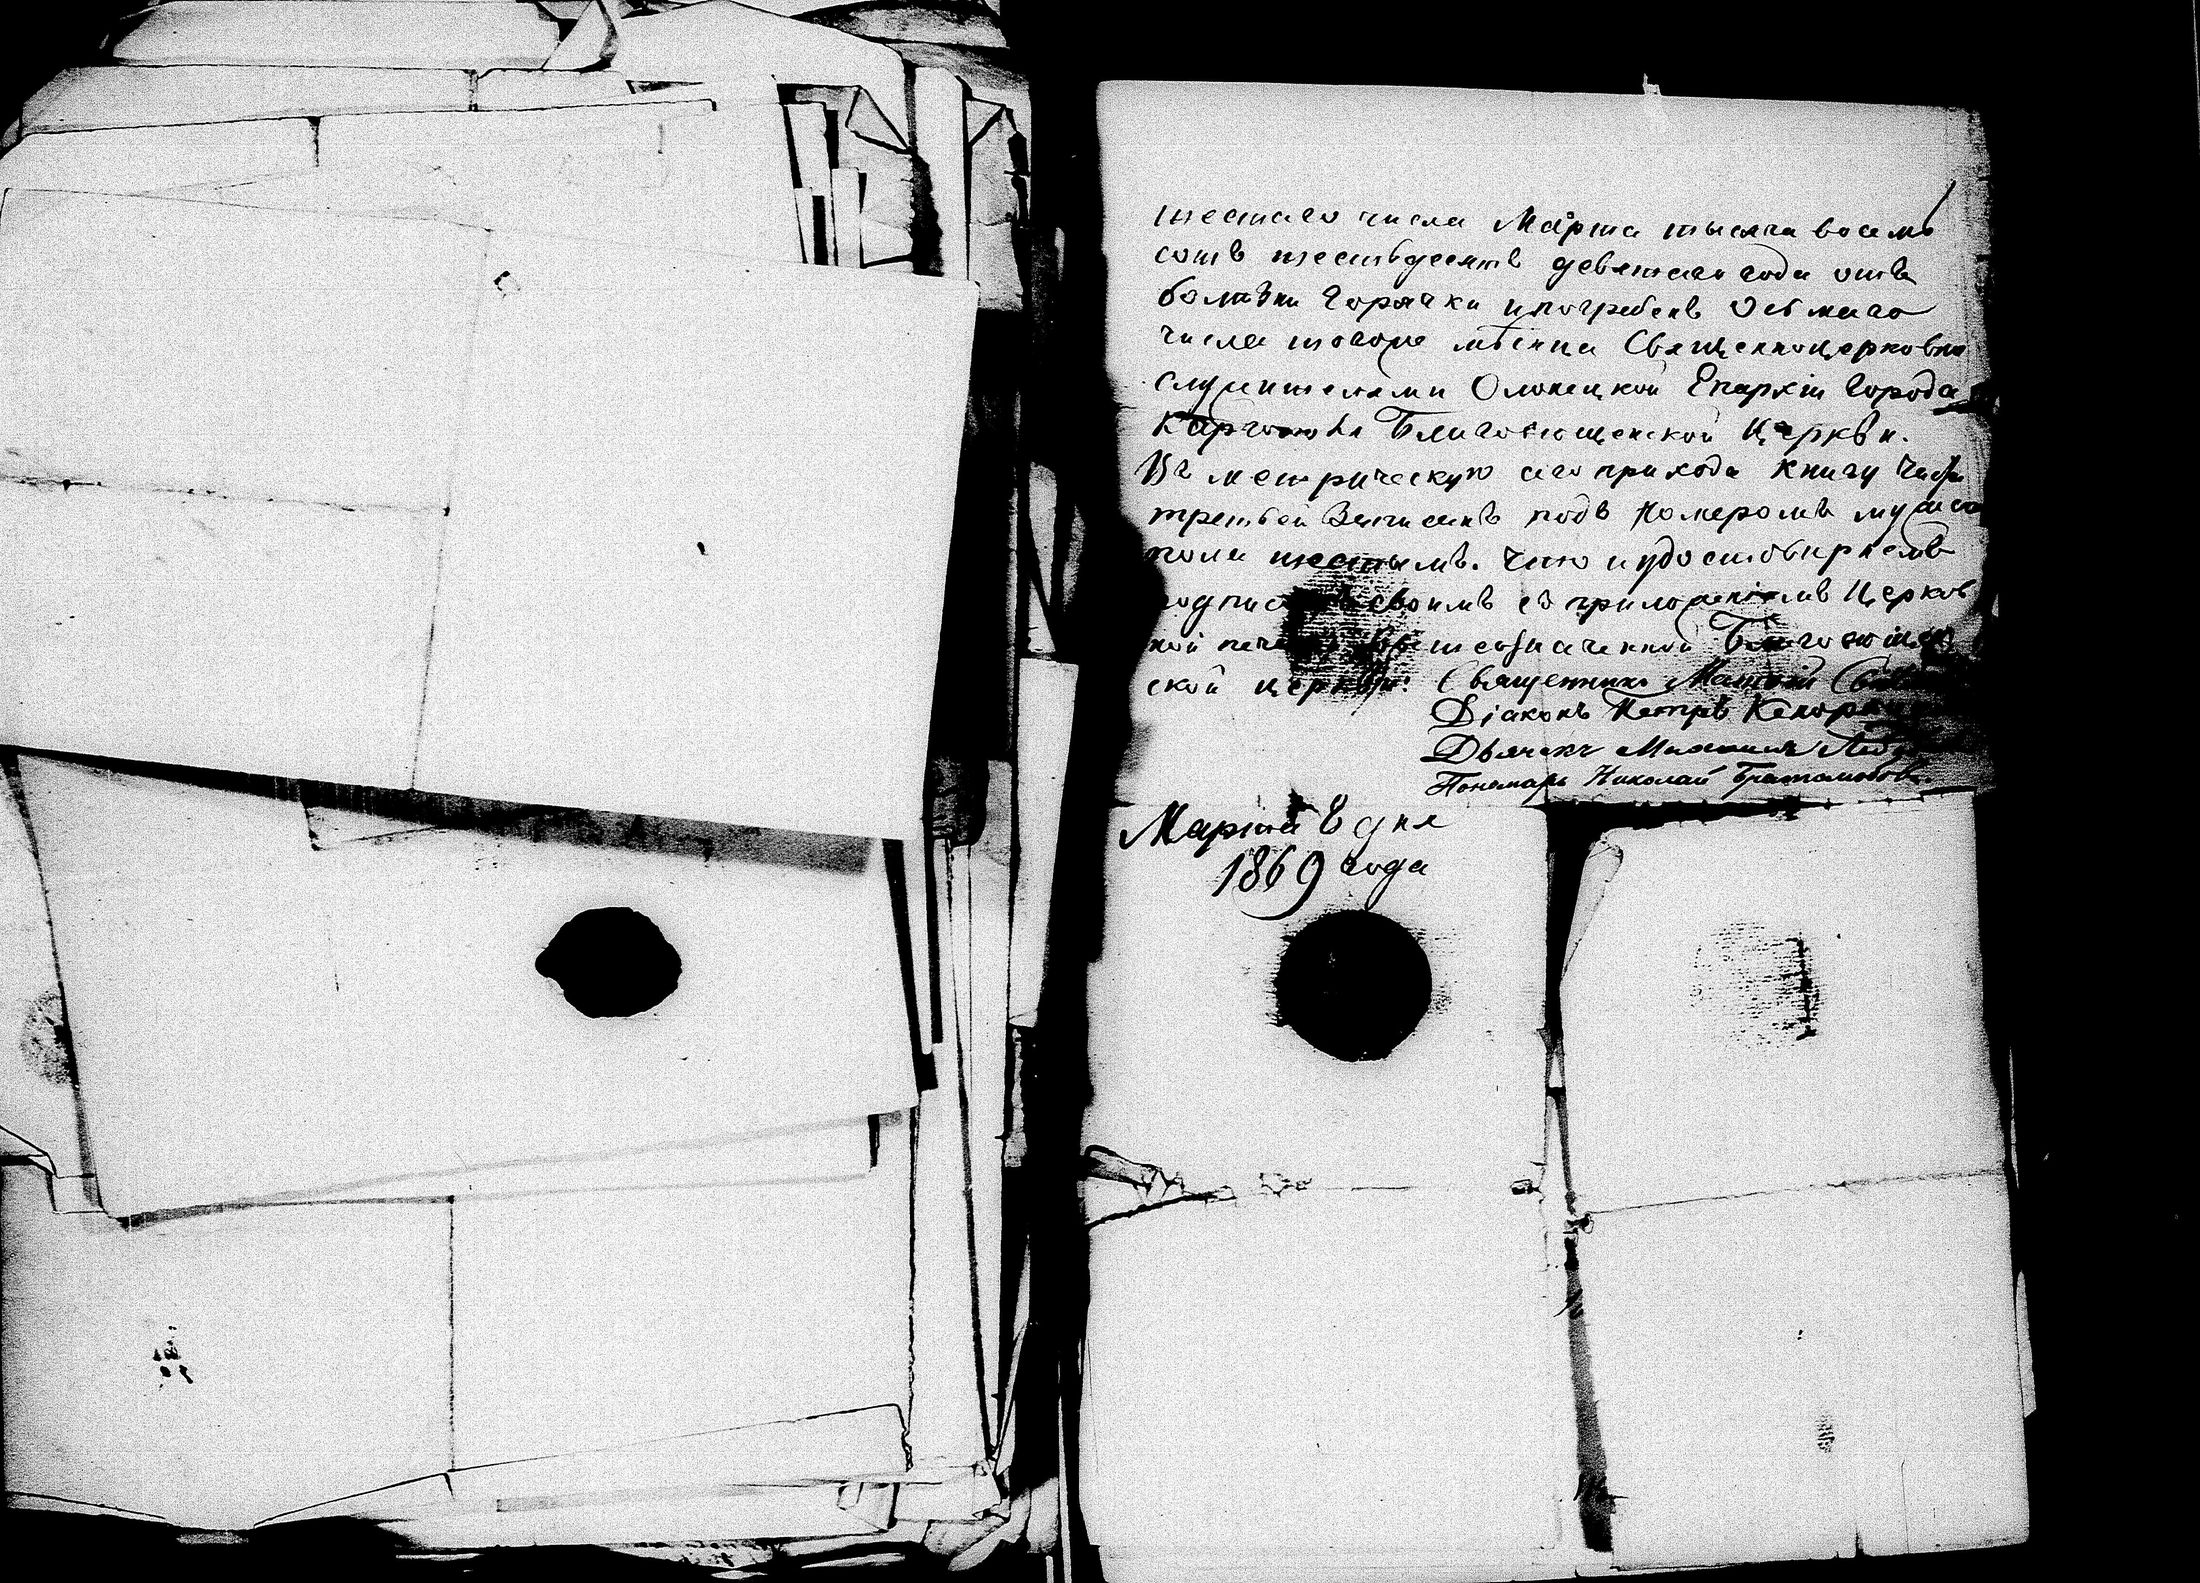 шестаго числа Марта тысяча восемь
сотъ шестьдесятъ девятаго года отъ
болѣзни горячки и погребенъ Осьмаго
числа тогоже мѣсяца Священноцерковно
служителями Олонецкой Епархіи города
Каргополя Благовѣщенской Церкви.
Въ метрическую сего прихода книгу части
третьей Записанъ подъ номеромъ мужеска
пола шестымъ. Что и удостовѣряемъ
подписомъ своимъ съ приложеніемъ Церков
ной печати вышеозначенной Благовѣщен
ской церкви. Священникъ
Діаконъ Петръ
Дьячекъ Михаилъ
Пономарь Николай Братолюбовъ.
Марта 8 дня
1869 года